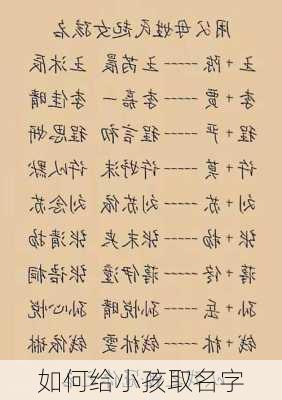 用父母姓氏起女孩名
王+陈-----王芮晨 王沐辰
李+贾-----李嘉一 李佳晴
程+严-----程言初 程思妍
许+莫-----许妤沫 许以默
刘+苏-----刘苏依 刘念苏
张+杨-----张未央 张清扬
蒋+佟-----蒋伊潼 蒋语桐
孙+岳-----孙悦晴 孙心悦
钱+林-----钱林雯 钱依琳
如何给小孩取名字